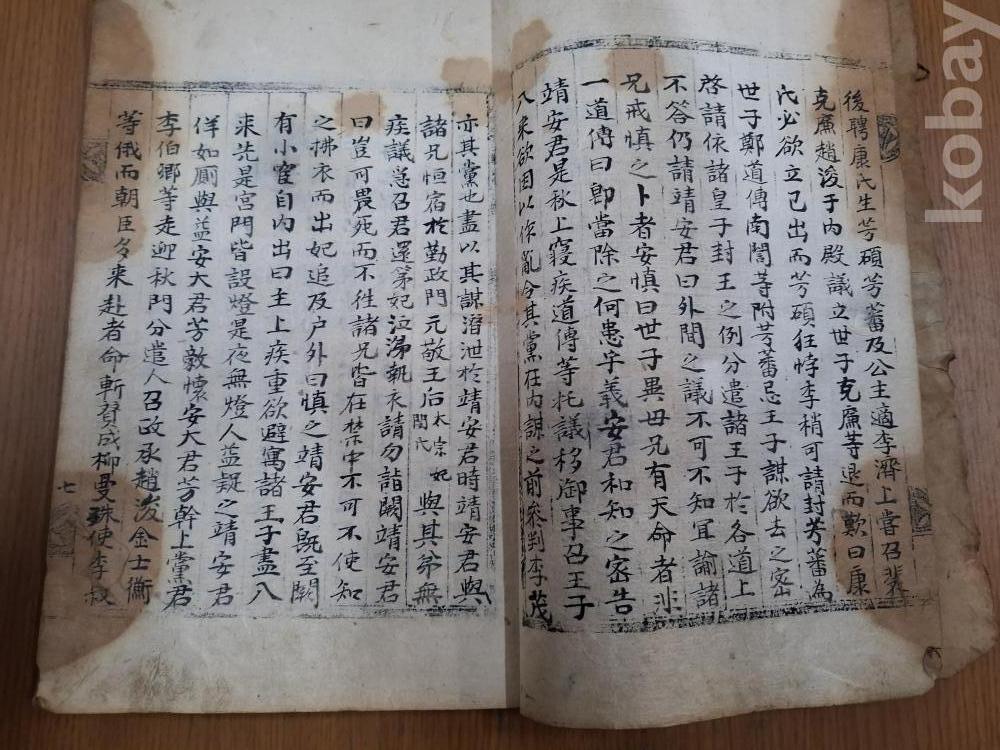 後聘康氏生芳碩芳蕃及公主適李濟上嘗召裴
克廉趙浚于內殿議立世子克廉等退而歎曰康
氏必欲立已出而芳碩狂悖李稍可請封芳蕃為
世子鄭道傳南誾等附芳蕃忌王子謀欲去之密
啓請依諸皇子封王之例分遣諸王子於各道上
不答仍請靖安君曰外間之議不可不知冝諭諸
兄戒慎之卜者安慎曰世子異毋兄有天命者非
一道傳曰卽當除之何患乎義安君和知之密告
靖安君是秋上寢疾道傳等托議移御事召王子
入來欲因以作亂令其黨在內謀之前叅判李茂
亦其黨也盡以其謀潛泄於靖安君時靖安君與
諸兄恒宿於勤政門元敬王后太宗妃閔氏與其弟無
疾議急召君還苐妃泣涕執衣請勿詣闕靖安君
曰豈可畏死而不徃諸兄皆在禁中不可不使知
之拂衣而出妃追及户外曰慎之靖安君旣至闕
有小宦自內出曰主上疾重欲避寓諸王子盡入
来先是宮門皆設燈是夜無燈人益疑之靖安君
佯如厠與益安大君芳毅懷安大君芳幹上黨君
李伯卿等走迎秋門分遣人召政丞趙浚金士衡
等俄而朝臣多来赴者命斬贇成柳曼殊使李叔
七
kobay